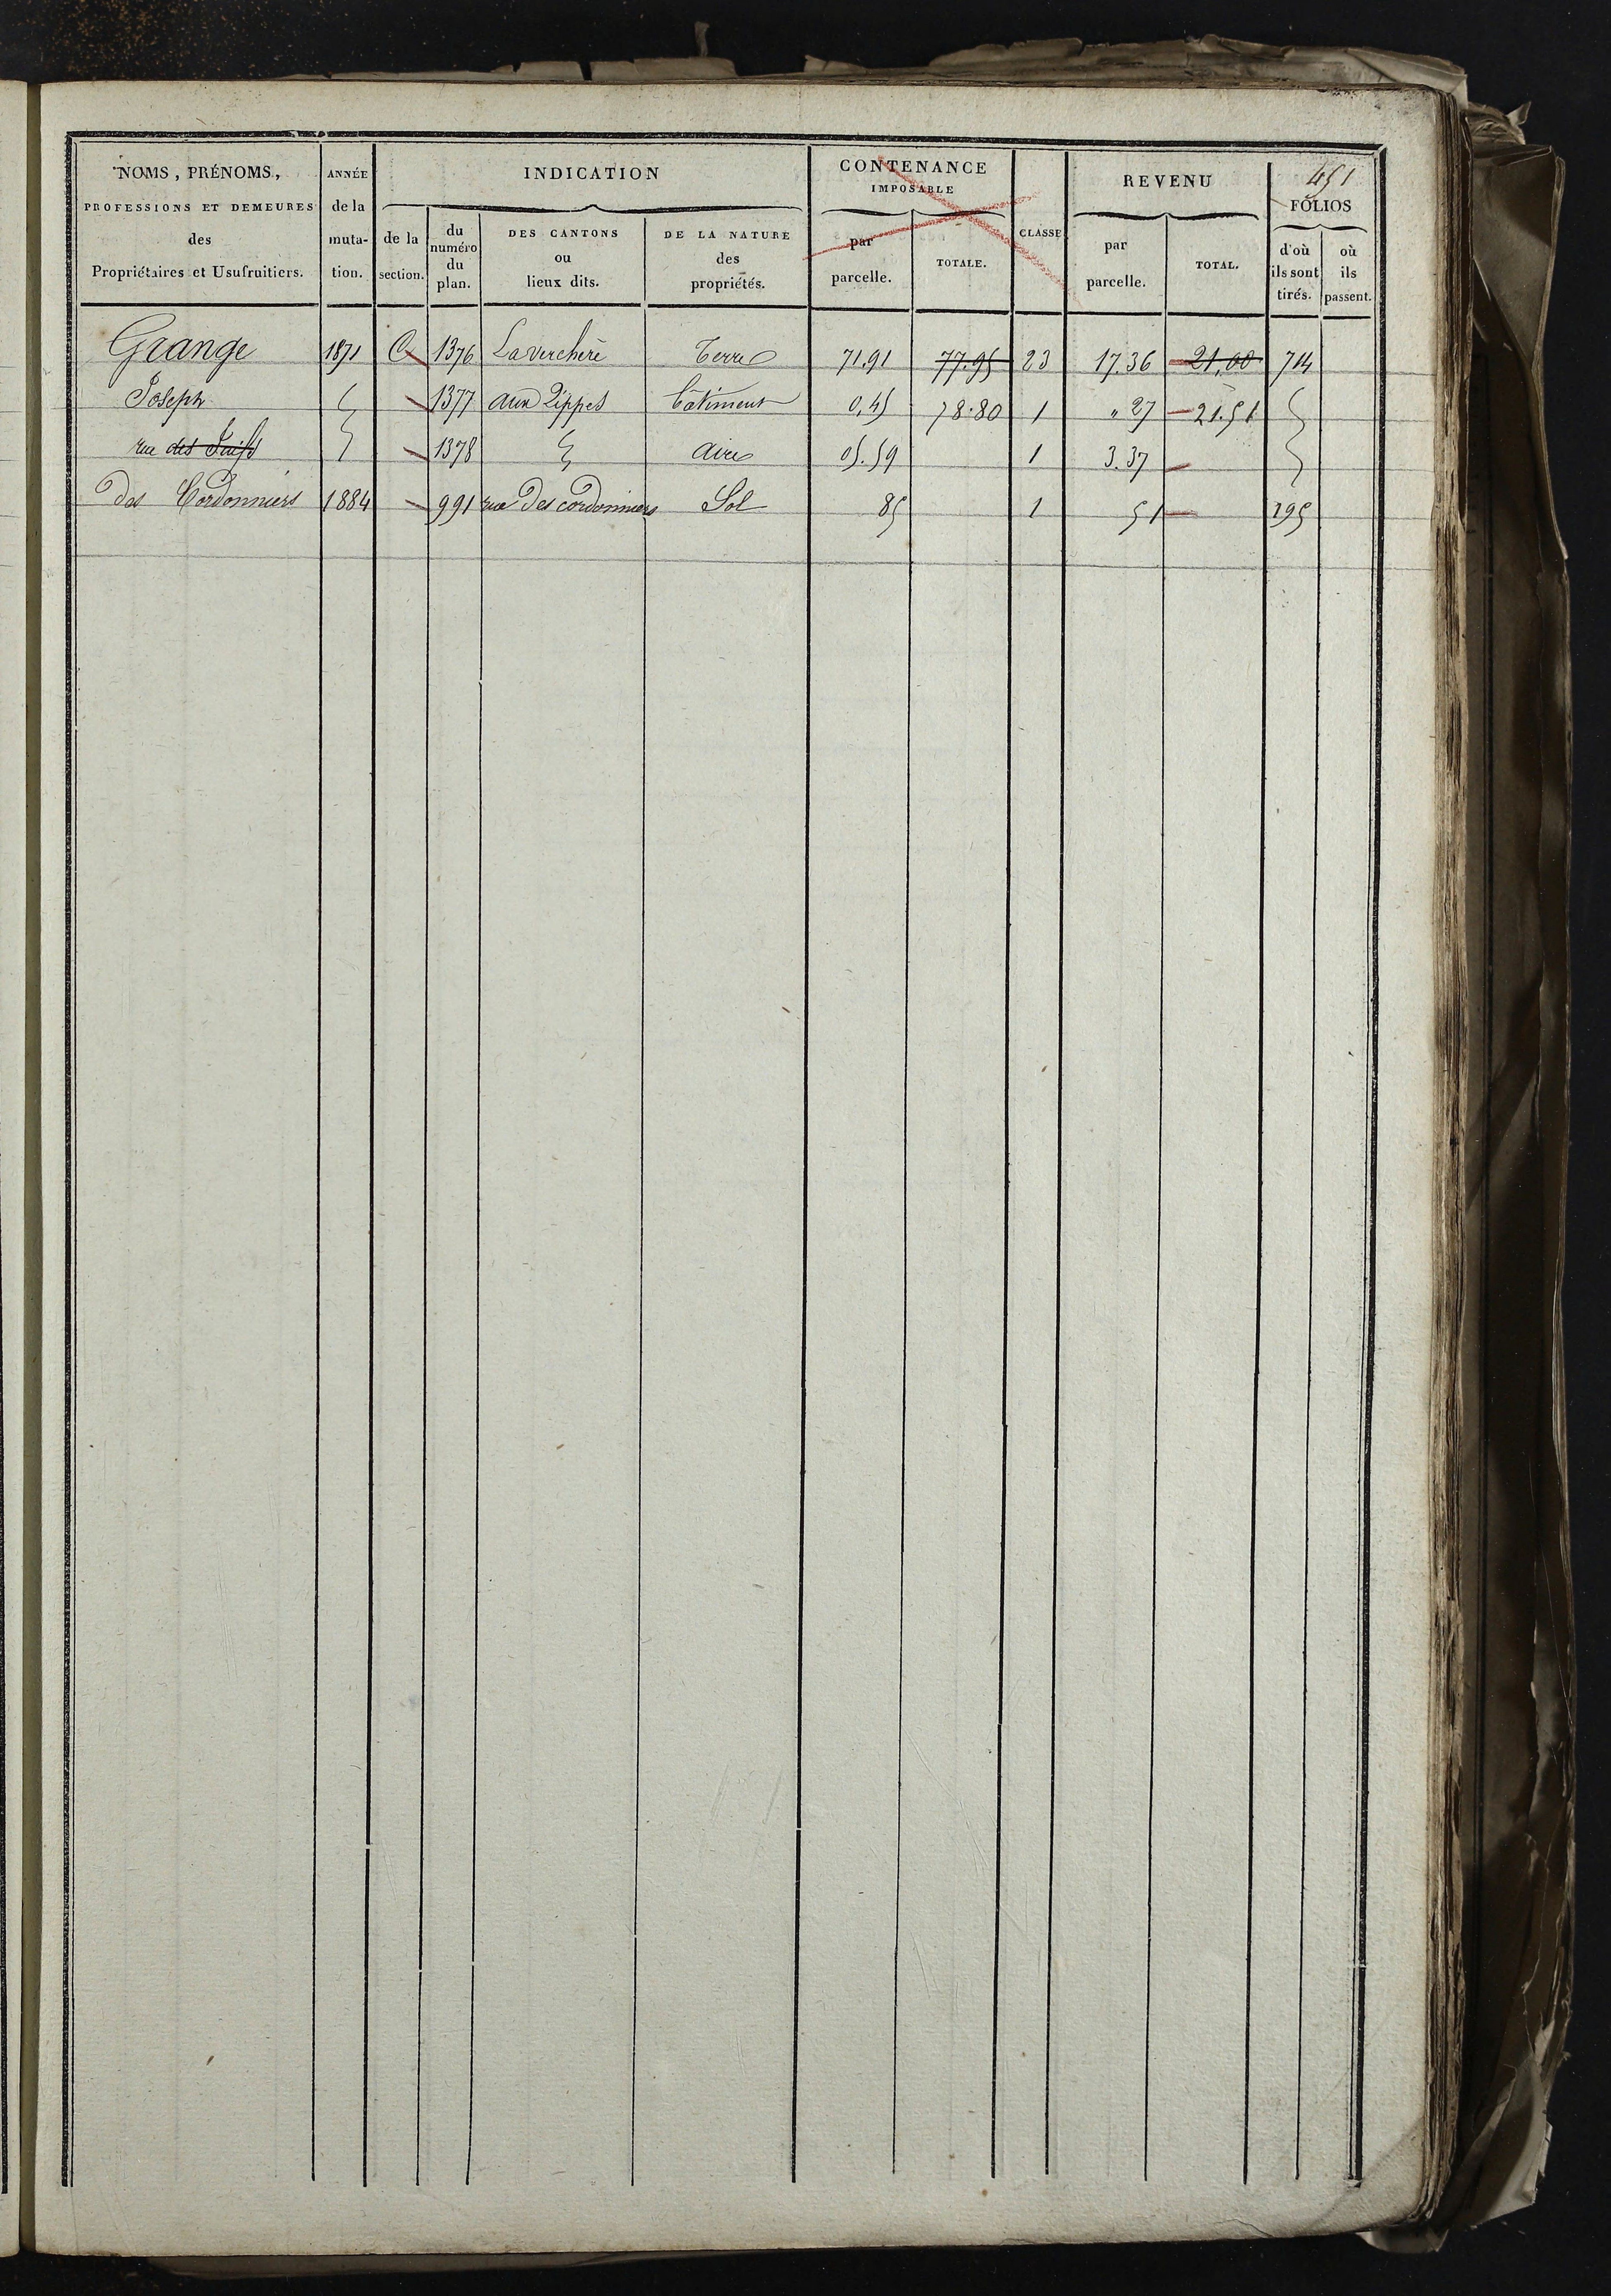 451
NOMS, PRÉNOMS, PROFESSIONS ET DEMEURES des Propriétaires et Usufruitiers.
ANNÉE de la muta-tion.
INDICATION
de la section.
du numéro du plan.
DES CANTONS ou lieux dits.
DE LA NATURE des propriétés.
CONTENANCE IMPOSABLE
par parcelle.
TOTALE.
CLASSE
REVENU
par parcelle.
TOTAL.
FOLIOS
d'où ils sont tirés.
où ils passent.
Grange 1871 C 1376 La verchère Terre 71.91 77.95 23 17.36 21,00 714
Joseph 1377 aux Lippes batiment 0,45 78.80 1 " 27 21.51
rue des Juifs 1378 aire 05.59 1 3.37
des Cordonniers 1884 991 rue des cordonniers Sol 85 1 51 195